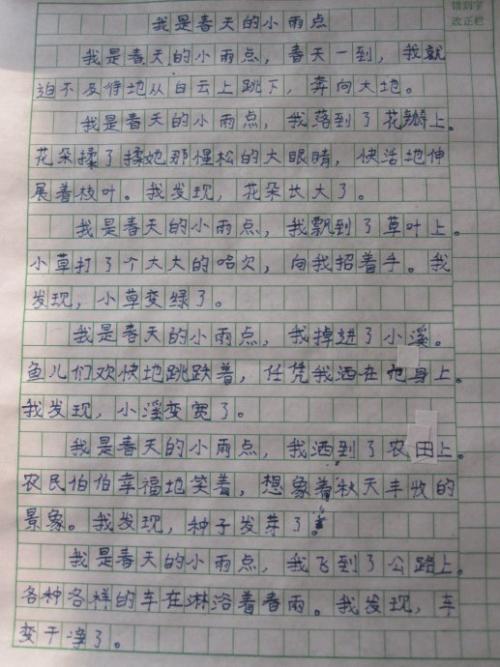 错别字
改正栏
我是春天的小雨点
我是春天的小雨点，春天一到，我就
迫不及待地从白云上跳下，奔向大地。
我是春天的小雨点，我落到了花瓣上。
花朵揉了揉她那惺松的大眼睛，快活地伸
展着枝叶。我发现，花朵长大了。
我是春天的小雨点，我飘到了草叶上。
小草打了个大大的哈欠，向我招着手。我
发现，小草变绿了。
我是春天的小雨点，我掉进了小溪。
鱼儿们欢快地跳跃着，任凭我洒在他身上。
我发现，小溪变宽了。
我是春天的小雨点，我洒到了农田上。
农民伯伯幸福地笑着，想象着秋天丰收的
景象。我发现，种子发芽了。
我是春天的小雨点，我飞到了公路上。
各种各样的车在淋浴着春雨。我发现，车
变干净了。